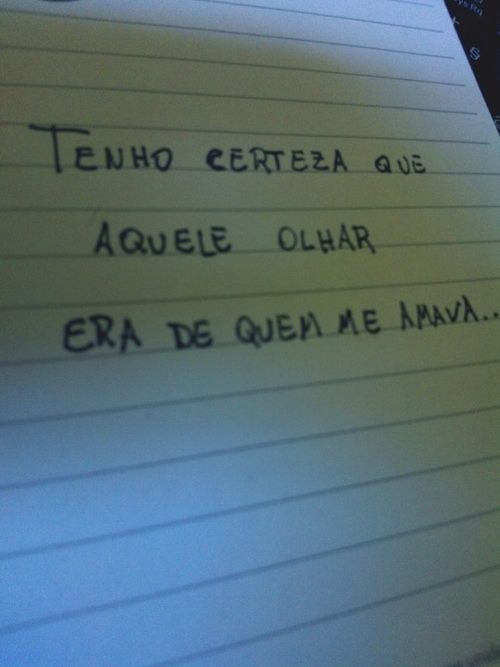 TENHO CERTEZA QUE
AQUELE OLHAR
ERA DE QUEM ME AMAVA...